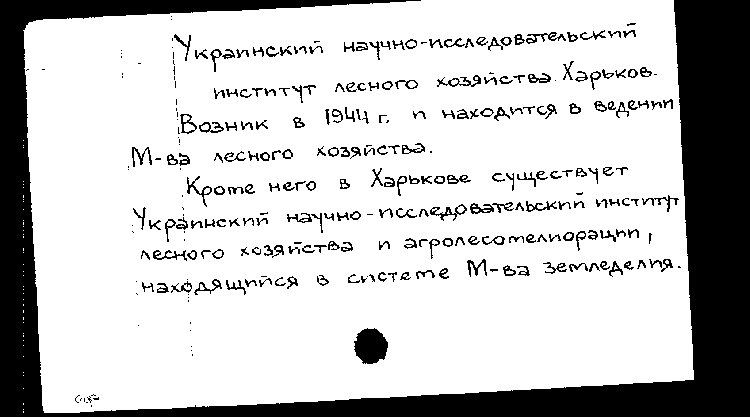 Украинский научно-исследовательский
институт лесного хозяйства. Харьков.
Возник в 1944 г. и находится в ведении
М-ва лесного хозяйства.
Кроме него в Харькове существует
Украинский научно-исследовательский институт
лесного хозяйства и агролесомелиорации,
находящийся в системе М-ва земледелия.